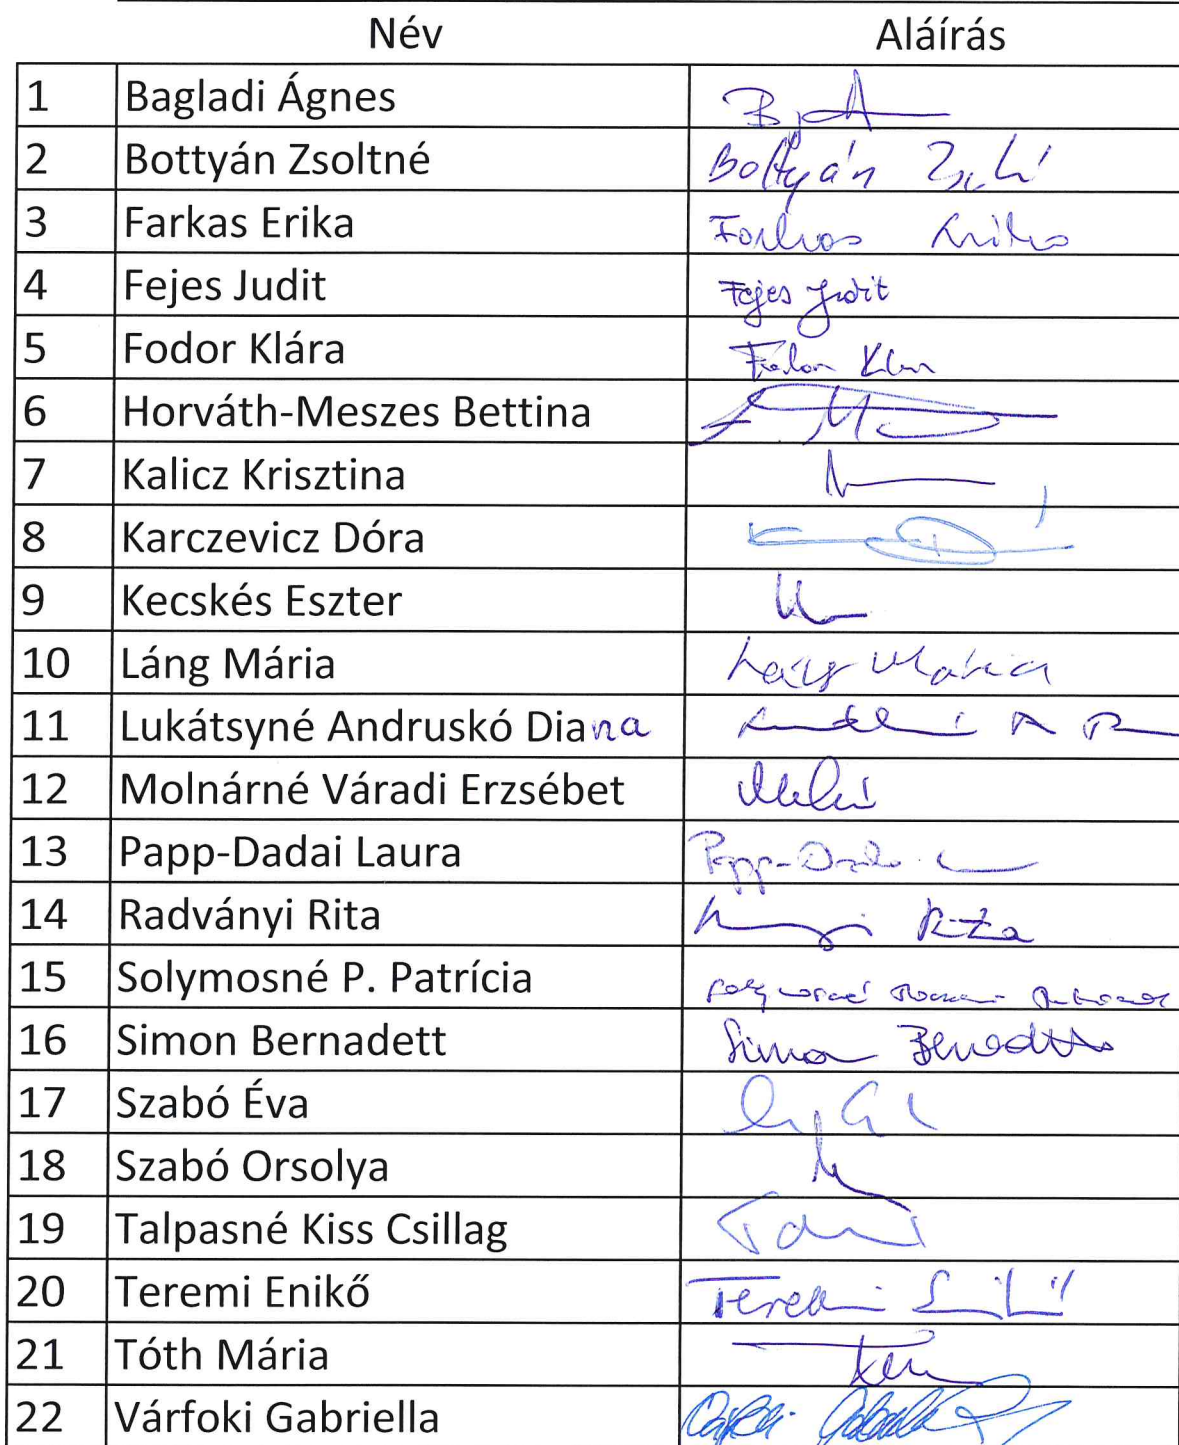 Név Aláírás
1 Bagladi Ágnes
2 Bottyán Zsoltné Bottyán
3 Farkas Erika Farkas Erika
4 Fejes Judit Fejes Judit
5 Fodor Klára Fodor Klára
6 Horváth-Meszes Bettina
7 Kalicz Krisztina
8 Karczevicz Dóra
9 Kecskés Eszter
10 Láng Mária Láng Mária
11 Lukátsyné Andruskó Diana
12 Molnárné Váradi Erzsébet
13 Papp-Dadai Laura Papp-Dadai
14 Radványi Rita Rita
15 Solymosné P. Patrícia
16 Simon Bernadett Simon Bernadett
17 Szabó Éva
18 Szabó Orsolya
19 Talpasné Kiss Csillag
20 Teremi Enikő Teremi Enikő
21 Tóth Mária
22 Várfoki Gabriella